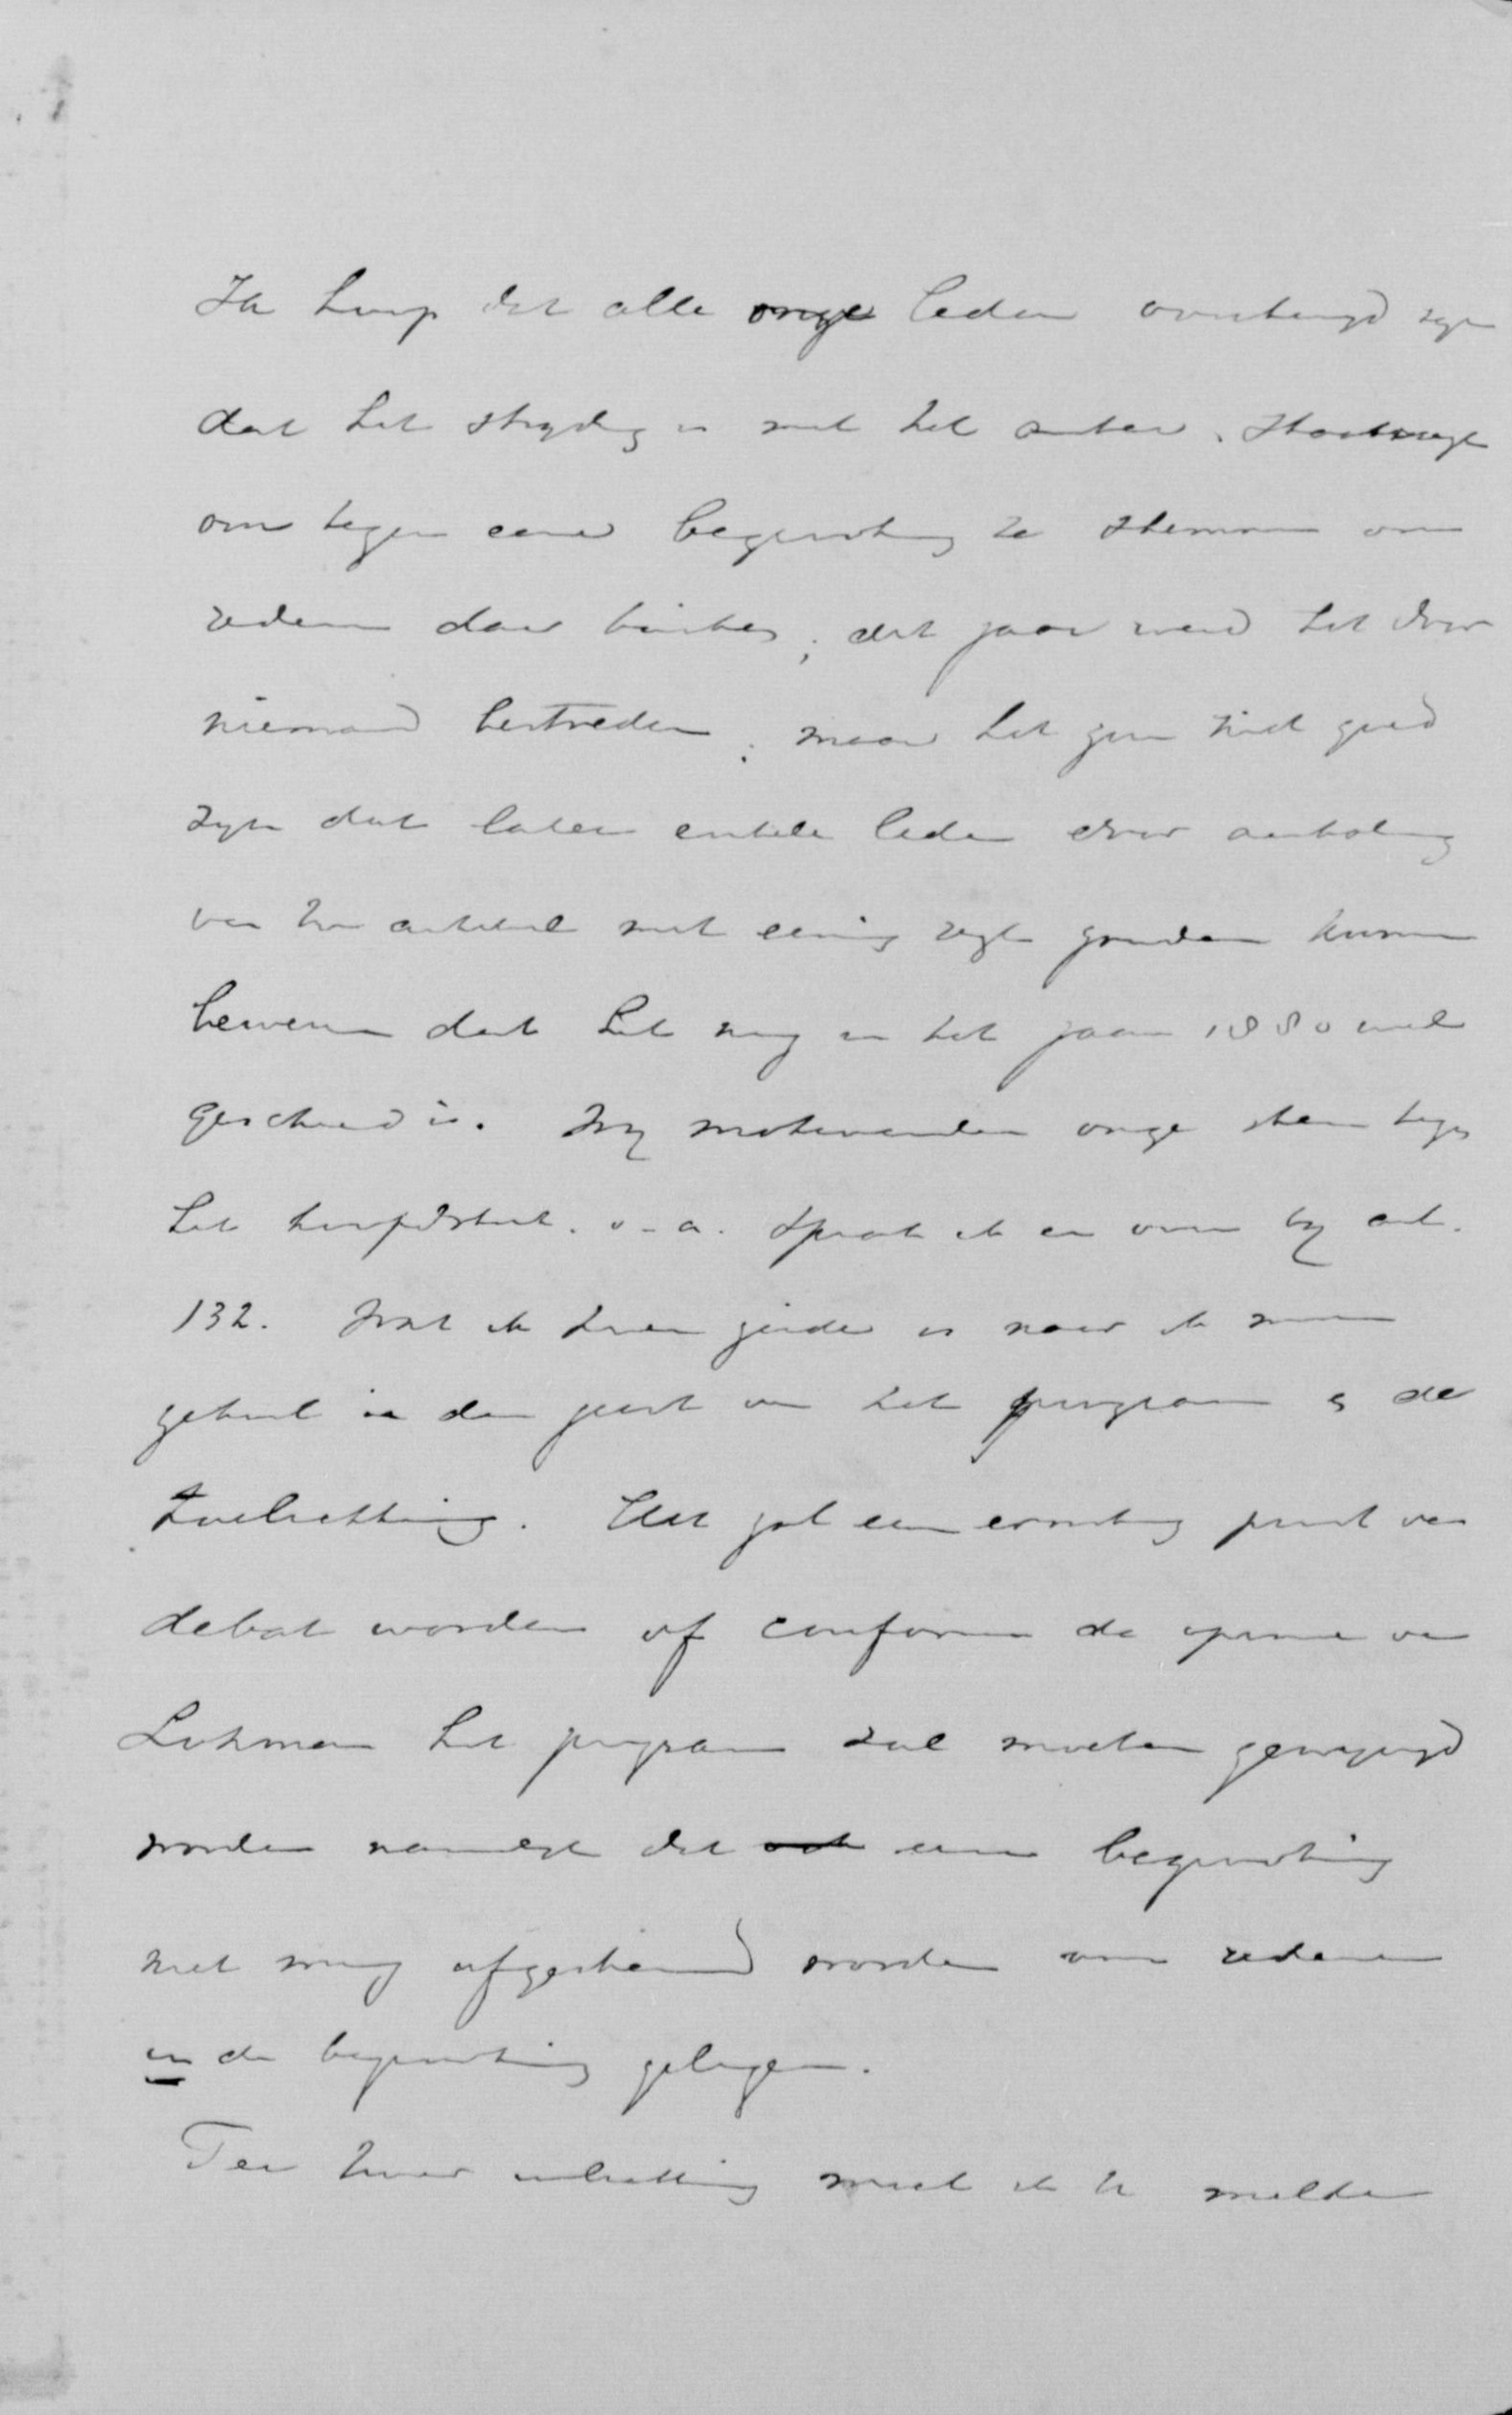 Ik hoop dat alle onze leden overtuigd zyn
dat het strydig is met het antirev. Staatsregt
om tegen eene begrooting te stemmen om
redenen daar buiten; dit jaar werd het door
niemand bestreden; maar het zou niet goed
zyn dat later enkele leden door aanhaling
van Uw artikel met eenig regt zouden kunnen
beweren dat het nog in het jaar 1880 wel
geschied is. Wy motiveerden onze stem tegen
het hoofdstuk. o.a. sprak ik er over by art.
132. Wat ik daar zeide is naar ik meen
geheel in den geest van het program & de
toelichting. Het zal een ernstig punt van
debat worden of conform de opinie van
Lohman het program zal moeten gewyzigd
worden namelyk dat eene begrooting
niet mag afgestemd worden om redenen
in de begrooting gelegen.
Ter Uwer inlichting moet ik U melden